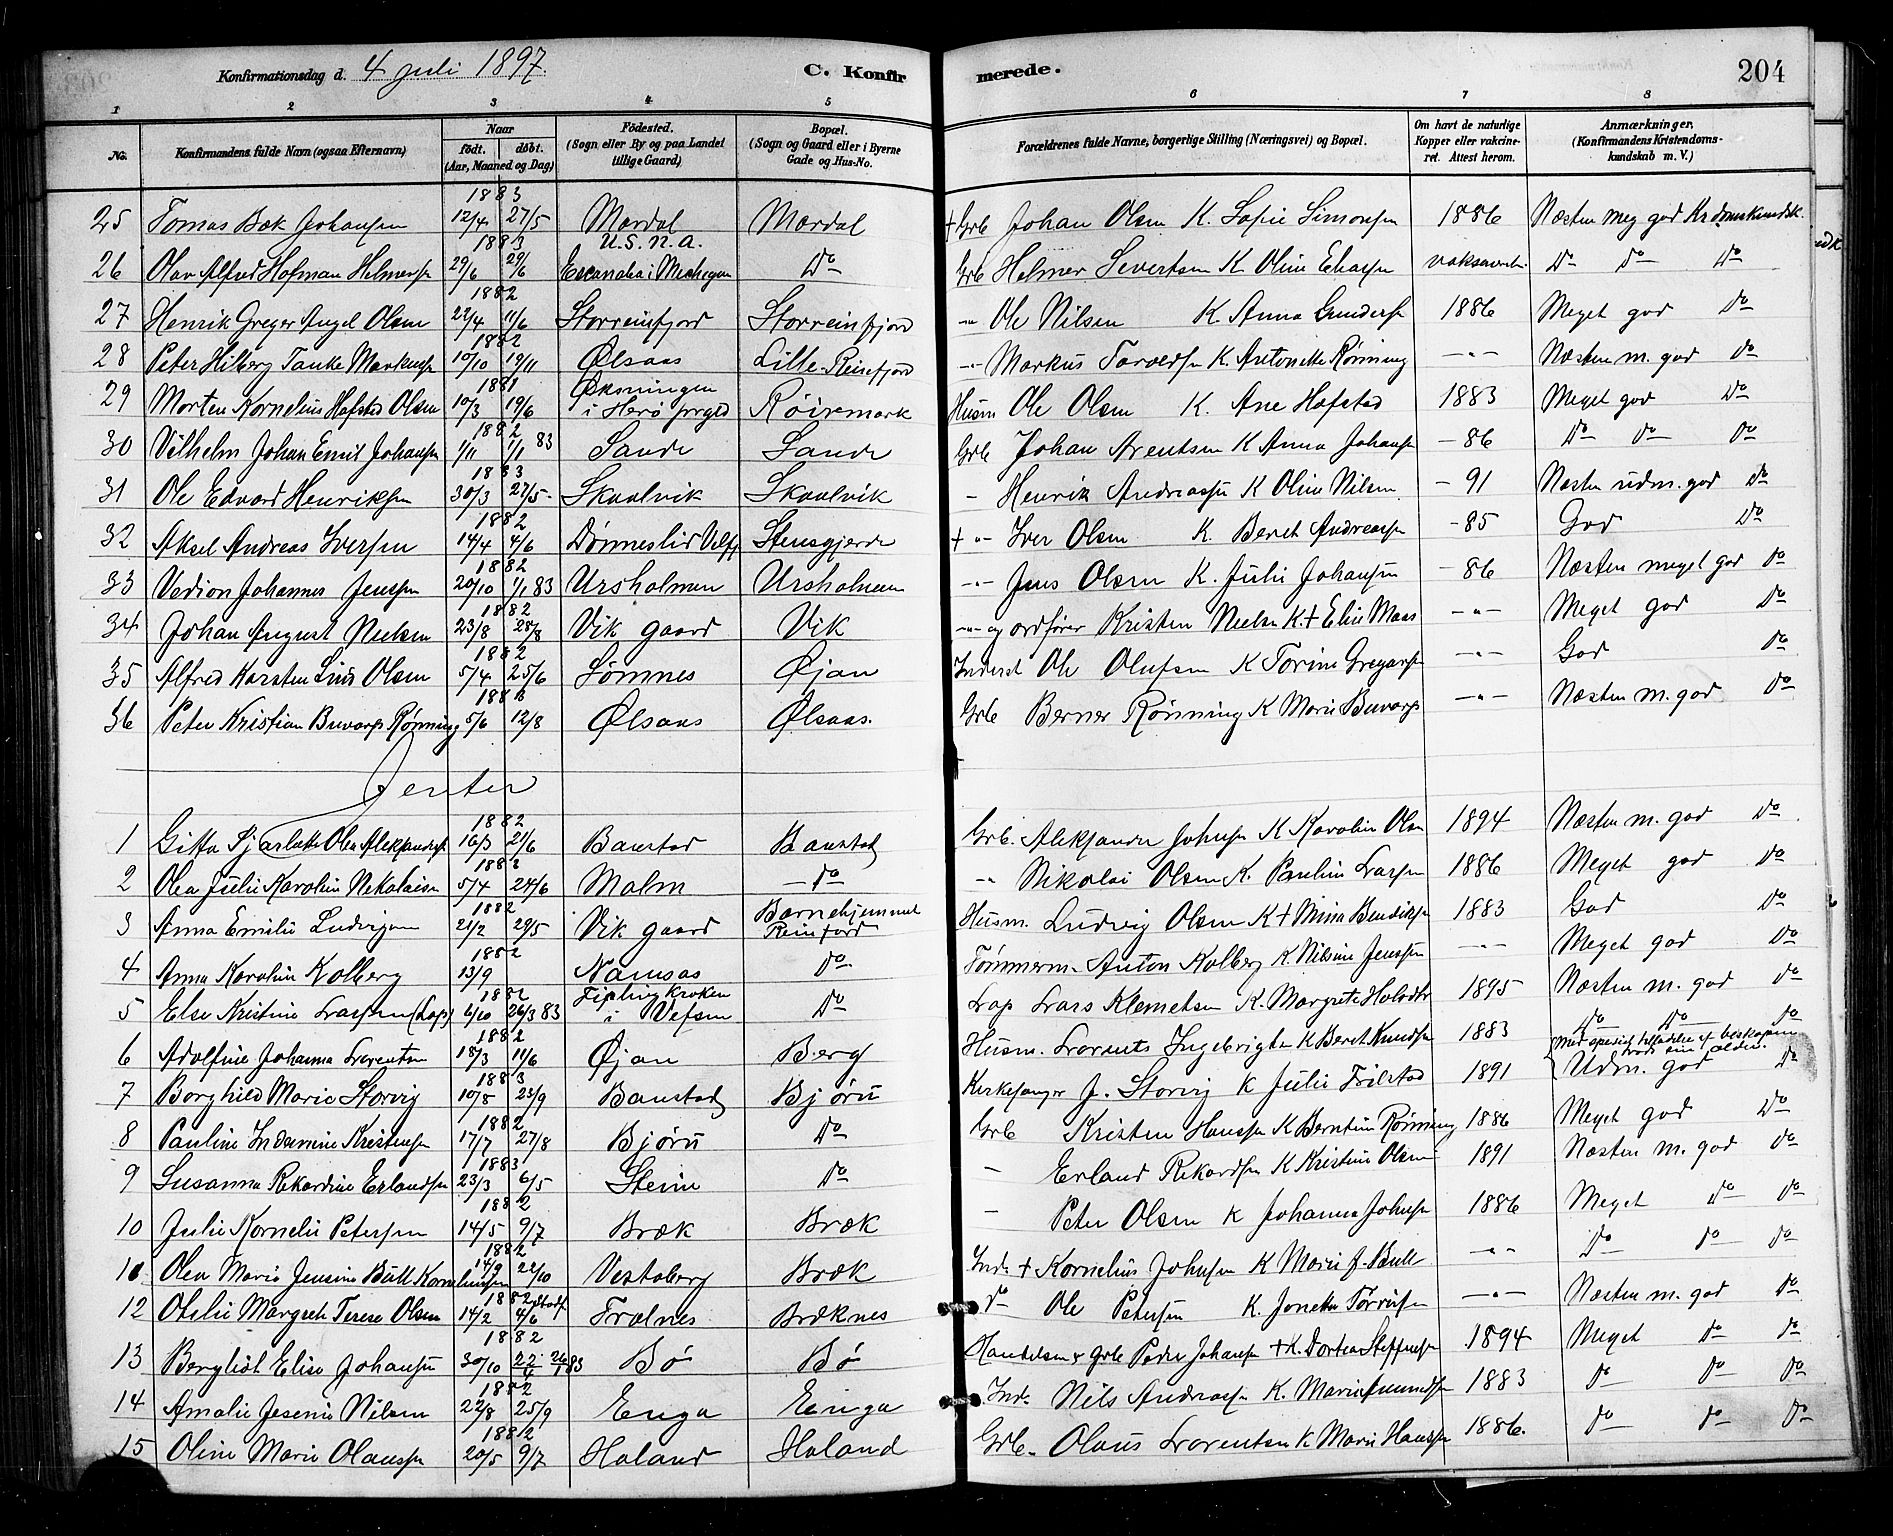 Konfirmationsdag d. 4 juli 1897. C. Konfirmerede. 204
1 2 3 4 5 6 7 8
No. Konfirmandens fulde Navn (ogsaa Efternavn) Naar födt. döbt. (Aar, Maaned og Dag) Födested. (Sogn eller By og paa Landet tillige Gaard) Bopæl. (Sogn og Gaard eller i Byerne Gade og Hus-No. Forældrenes fulde Navne, borgerlige Stilling (Næringsvei) og Bopæl. Om havt de naturlige Kopper eller vakcineret. Attest herom. Anmærkninger. (Konfirmandens Kristendomskundskab m. V.)
1883
25 Tomas Bæk Johansen 12/4 27/5 Mardal Mardal + Grb Johan Olsen K. Sofie Simonsen 1886 Næsten meg god Krdomskundsk.
1883 U.S.N.A.
26 Olav Alfred Hofman Helmersn 29/6 29/6 Escanaba i Mechigan Do Grb Helmer Severtsen K Oline Eliasen Do Do Do
1882
27 Henrik Greger Angel Olsen 22/4 11/6 Storreinfjord Storreinfjord -"- Ole Nilsen K Anna Gundersn 1886 Meget god Do
1882
28 Peter Hilberg Tanke Markusn 10/10 19/11 Ølsaas Lille-Reinfjord -"- Markus Torvedsn K. Antonette Rønning -"- Næsten m. god Do
1881
29 Morten Kornelius Hofstad Olsen 10/3 19/6 Øksningen i Herø prgjd Røiremark Husm Ole Olsen K. Ane Hofstad 1883 Meget god Do
1882
30 Vilhelm Johan Emil Johansn 1/11 1/1 83 Sande Sande Grb Johan Arentsen K Anna Johansn -86 Do Do Do
1883
31 Ole Edvard Henriksen 30/3 27/5 Skaalvik Skaalvik - Henrik Andreassn K Oline Nilsen -91 Næsten udm. god Do
1882
32 Aksel Andreas Iversen 14/4 4/6 Dønneslid Velfj Stensgjerde + -"- Iver Olsen K. Beret Andreasn -85 God Do
1882
33 Johannes Jensen 20/10 1/1 83 Ursholmen Ursholmen -"- Jens Olsen K. Julie Johansen -86 Næsten meget god Do
1882
34 Johan August Nielsen 23/8 28/8 Vik gaard Vik -"- og ordfører Kristen Nielsn K. + Elin Maas -"- Meget god Do
1882
35 Alfred Karsten Olsen 5/4 25/6 Sømnes Øjan Inderst Ole Olufsen K Torine Gregersn -"- God Do
188
36 Peter Kristian Buvarp Rønning 5/6 12/8 Ølsaas Ølsaas. Grb Berner Rønning K Marie Buvarp -"- Næsten m. god Do
Jenter
1882
1 Gitta Olea Aleksandersn 16/3 21/6 Baustad Baustad Grb. Aleksander Johnsen K Karolin Olsn 1894 Næsten m. god Do
1882
2 Olea Julie Karoline Nikolaisn 5/4 24/6 Malm -Do- -"- Nikolai Olsen K. Pauline Larsen 1886 Meget god Do
1882
3 Anna Emilie Ludvigsen 21/2 29/5 Vik gaard Børnehjemmet Reinfjord Husm. Ludvig Olsen K + Mina Bendiksn 1883 God Do
1882
4 Anna Karoline Kolberg 13/9 Namsos Do Tømmerm. Anton Kolberg K. Nilsine Jenssen -"- Meget god Do
1882
5 Else Kristine Larsen (Lap) 6/10 26/3 83 Fiplingkroken i Vefsen Do Lap Lars Klemetsen K. Margrete Holmdtr 1895 Næsten m. god Do
1882
6 Adolfine Johanna Lorentsn 18/3 11/6 Øjan Berg Husm. Lorents Ingebrigtn K Beret Knudsn 1883 Do Do Do
1883
7 Borghild Marie Storvig 10/5 23/9 Baustad Bjørn Kirkesanger J. Storvig K Julie Frilstad 1891 Udm. god Do
1882
8 Pauline Indamine Kristensn 17/7 27/8 Bjørn Do Grb Kristen Hanssn K Berntine Rønning 1886 Meget god Do
1883
9 Susanna Rekardine Erlandsn 23/3 6/5 Stein Do - Erland Rekardsn K Kristine Olsen 1891 Næsten m. god Do
1882
10 Julie Kornelie Petersen 14/5 9/7 Bræk Bræk - Peter Olsen K Johanna Johnsn 1886 Meget Do Do
1882
11 Olea Marie Jensine Bull Korneliussen 14/9 22/10 Vestaberg Bræk Ind. + Kornelius Johnsen K Marie J. Bull -"- Do Do Do
1882
12 Otelie Margreth Terese Olsen 14/2 4/6 Trælnes Bræknes Do Ole Petersen K. Joneta Torrisn -"- Næsten m. god Do
1882
13 Bergliot Elise Johansn 30/10 26/1 83 Bø Bø Handelsm & Grb Peder Johansn + K. Dortea Steffensn 1894 Meget Do Do
1882
14 Amalie Jesenie Nilsen 22/8 25/9 Enga Enga Ind. Nils Andreassn K. Marie Amundsn 1883 Do Do Do
1882
15 Oline Marie Olaussn 20/5 9/7 Holand Holand Grb. Olaus Lorentsen K Marie Hanssn 1886. Do Do Do